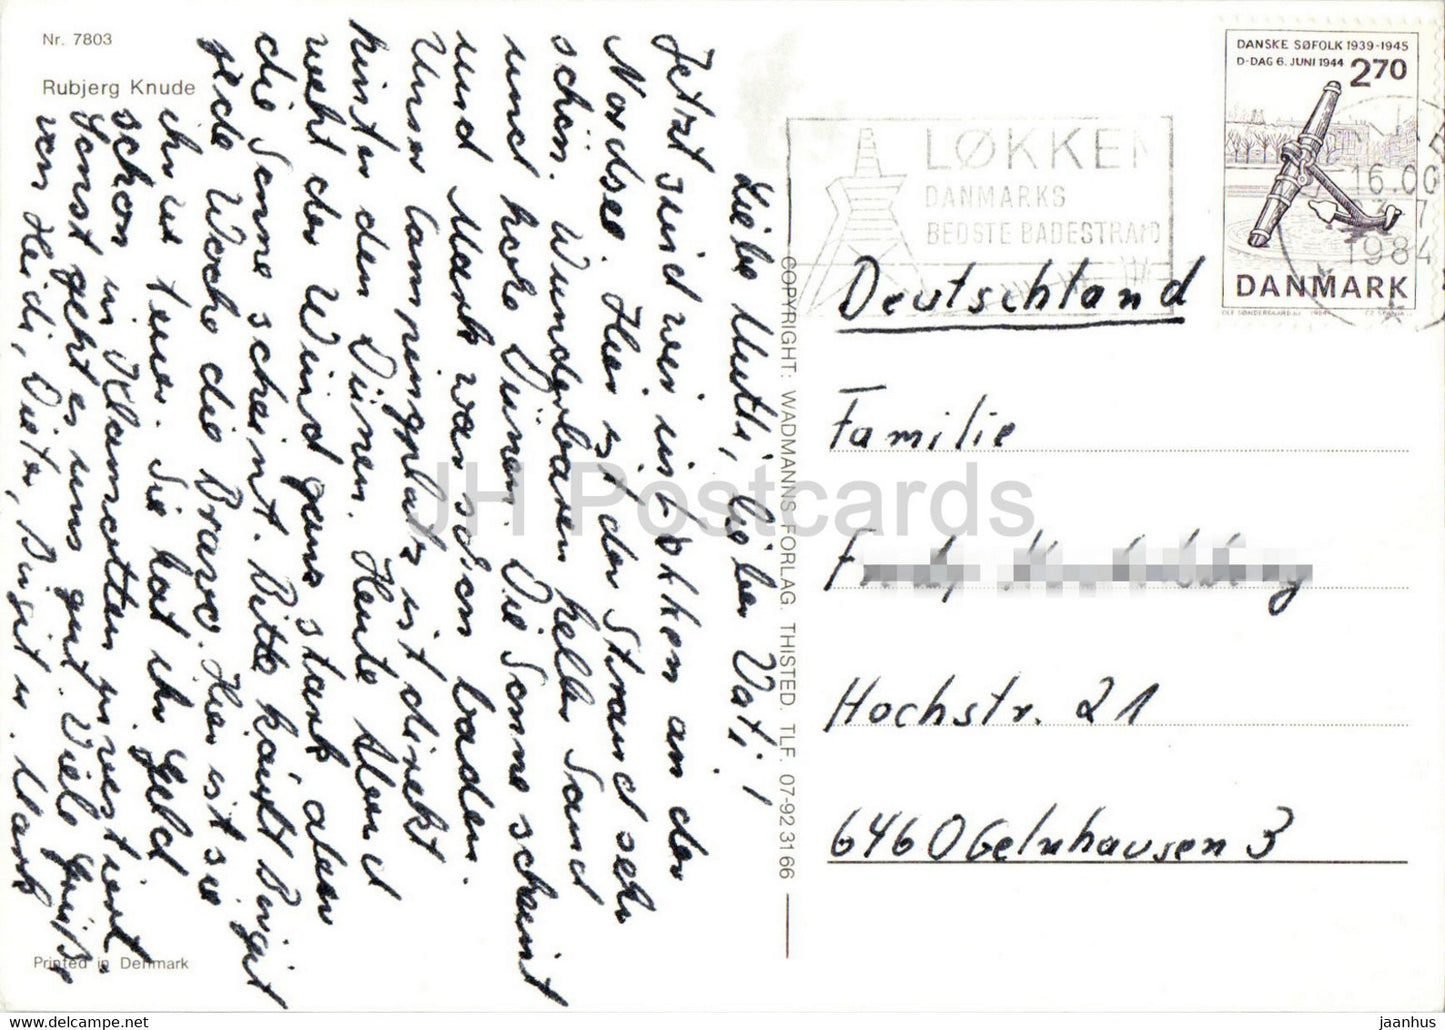 Nr. 7803
Rubjerg Knude
Liebe Mutti, lieber Vati!
Jetzt sind wir in Lökken an der
Nordsee. Hier ist der Strand sehr
schön. Wunderbaren heller Sand
und hohe Dünen. Die Sonne scheint
und Mark war schon baden.
Unser Campingplatz ist direkt
hinter den Dünen. Heute Abend
weht der Wind ganz stark aber
die Sonne scheint. Bitte kauft Birgit
jede Woche die Bravo. Hier ist sie
ihr zu teuer. Sie hat ihr Geld
schon in Klamotten investiert.
Sonst geht es uns gut. Viele Grüße
von Heidi, Dieter, Birgit u. Mark
Printed in Denmark
COPYRIGHT: WADMANNS FORLAG. THISTED. TLF. 07-92 31 66
LØKKEN
DANMARKS
BEDSTE BADESTRAND
DANSKE SØFOLK 1939-1945
D-DAG 6. JUNI 1944
270
16.00
1984
DANMARK
Deutschland
Familie
Hochstr. 21
6460 Gelnhausen 3
JH Postcards
jaanhus